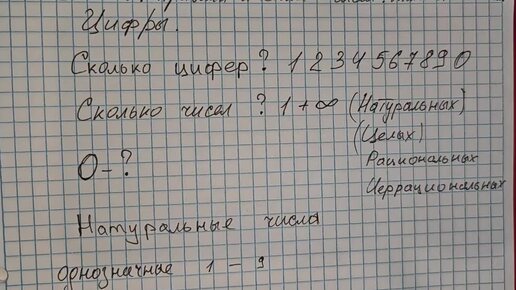 Цифры.
Сколько цифер ? 1 2 3 4 5 6 7 8 9 0
Сколько чисел ? 1 + ∞ (Натуральных)
(Целых)
0 - ?
Рациональных
Иеррациональных
Натуральные числа
однозначные 1 - 9